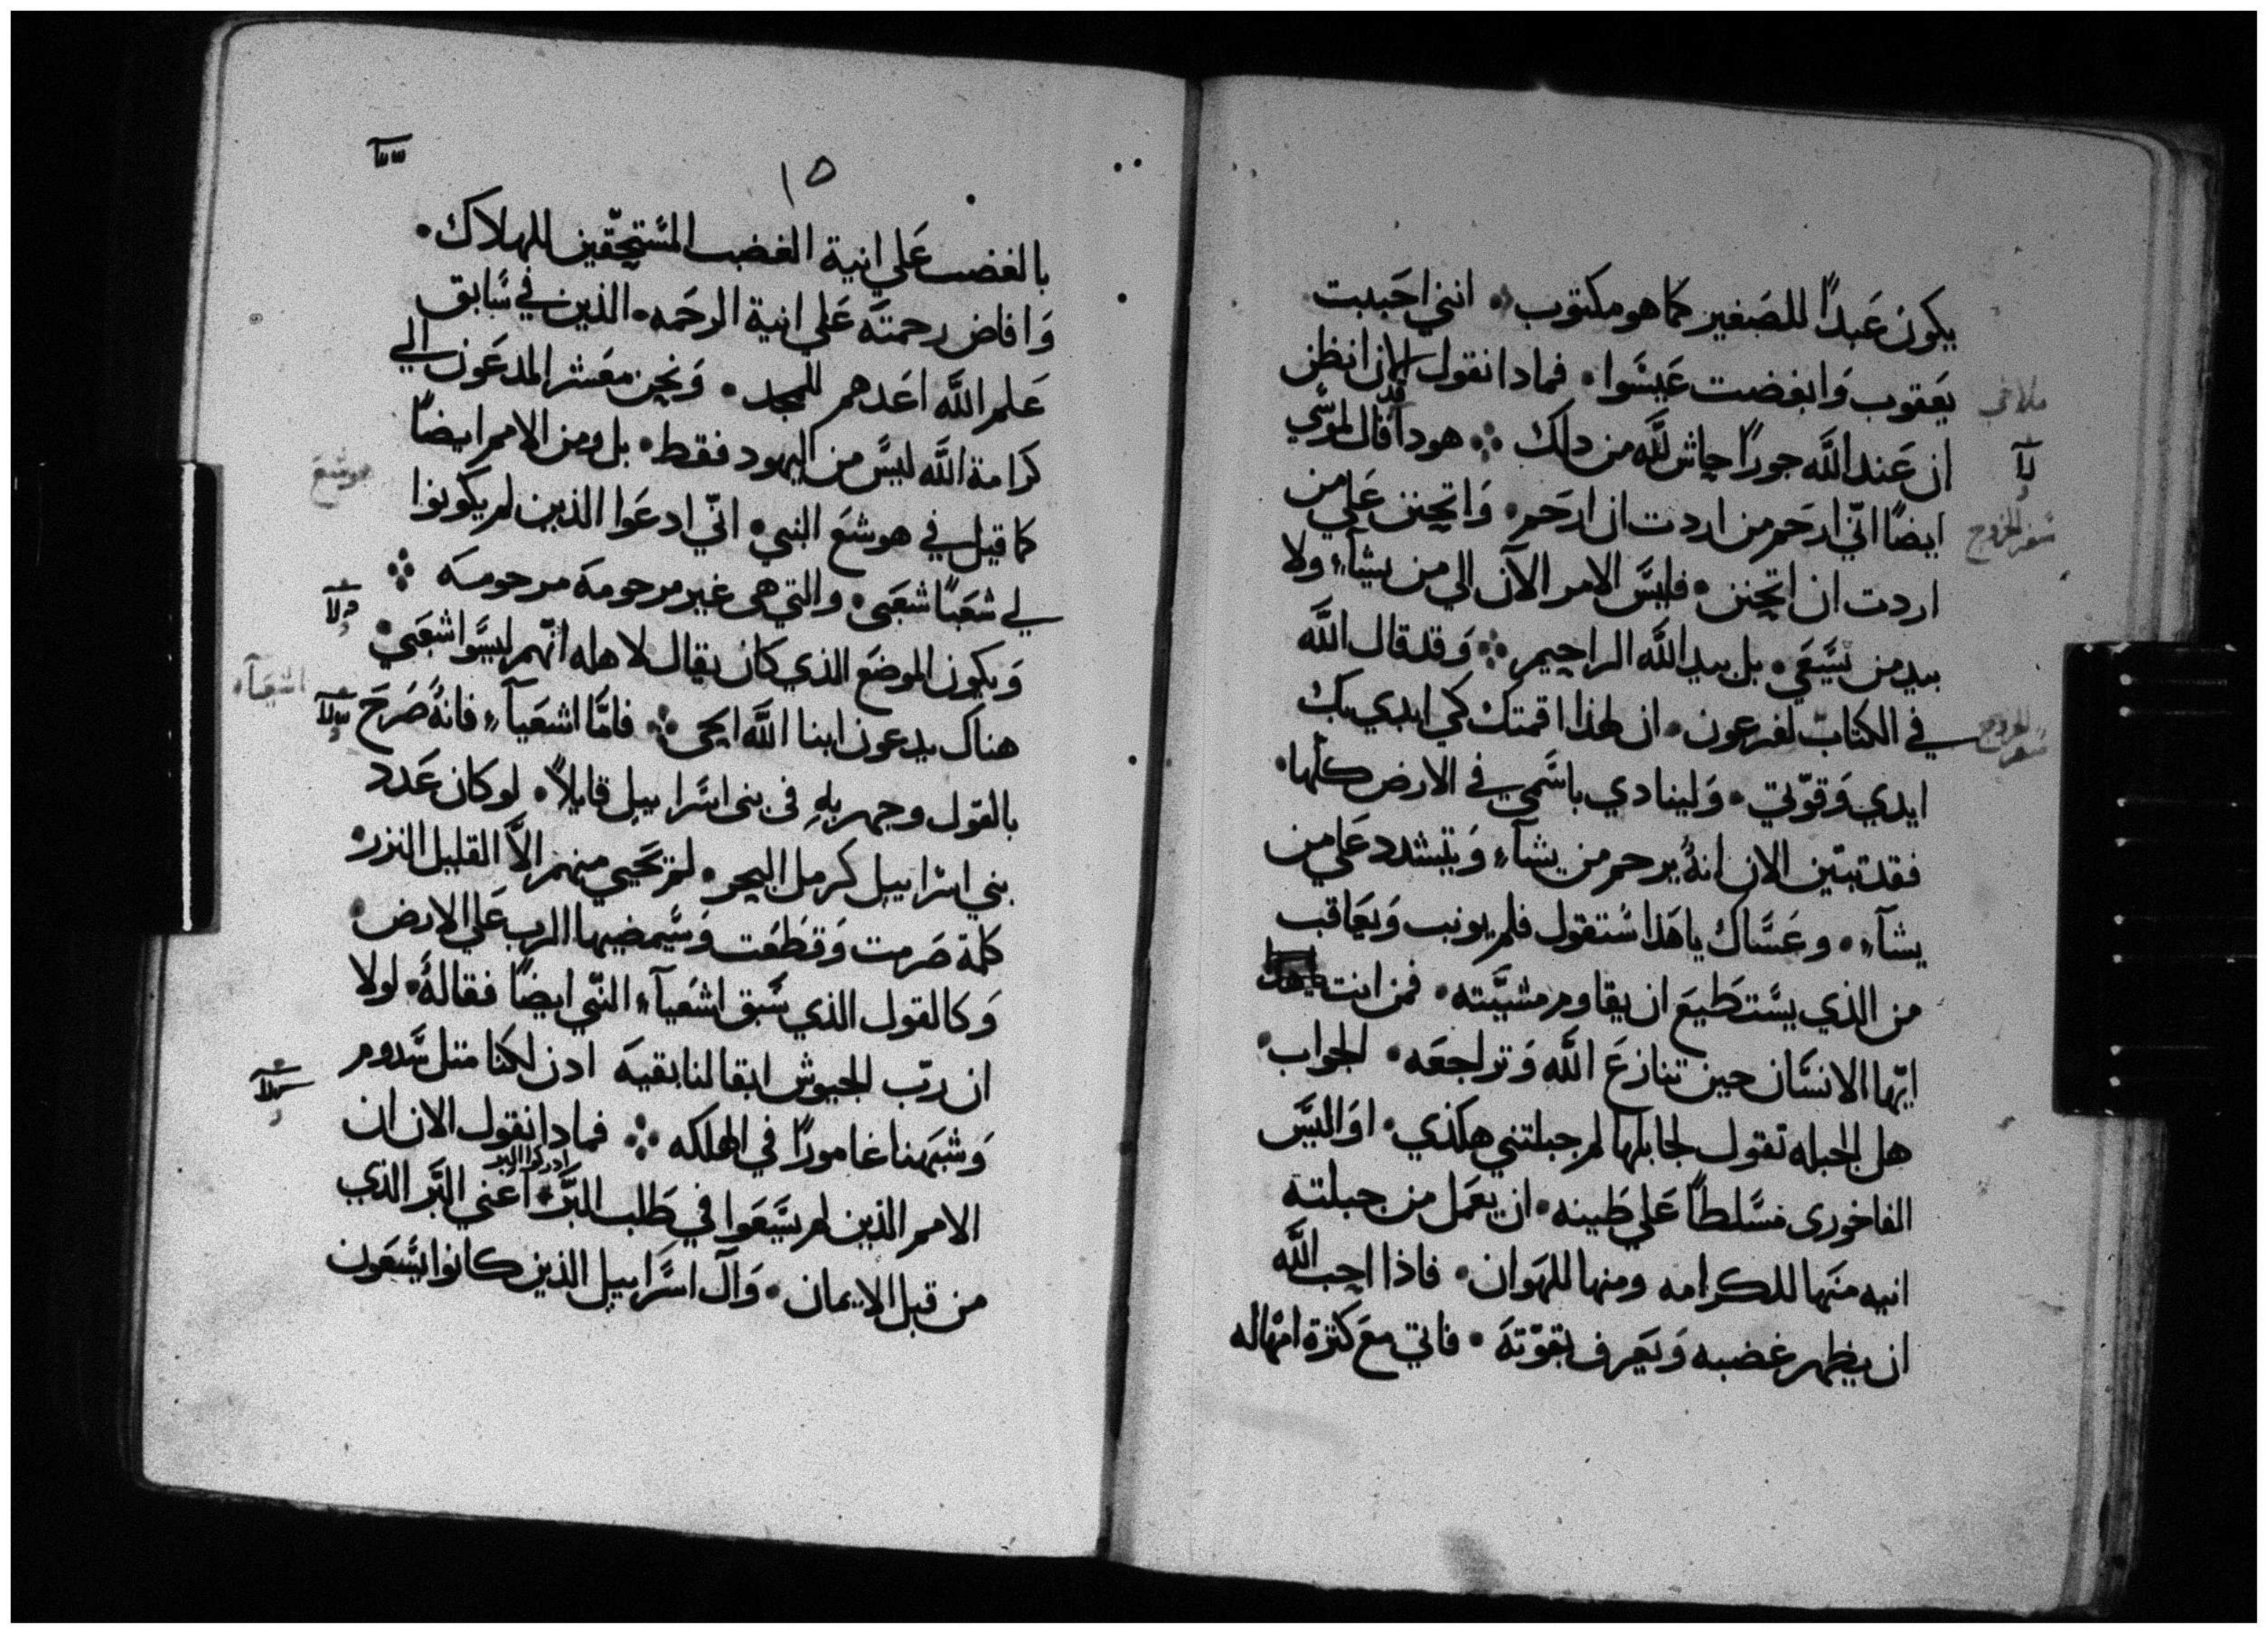 يكون عَبدًا للصَغير كما هو مكتوب • انني احَببت
يَعقوب وَابغضت عَيسَوا • فمادا نقول الان انظن
ملاخي
ان عَند الله جورًا حاش لله من دلك ⁘ هودا قد قال لموسَي
ايضًا انّي ارحَمر من اردت ان ارحَم • وَاتحنن عَلي من
سَفر الخروج
اردت ان اتحنن • فليسَ الامر الآن الي من يشآء ولا
بيد من يسَعَي • بل بيد الله الراحيم ⁘ وَقد قال الله
في الكتاب لفرعون • ان لهذا اقمتك كي ابدي بك
سَفر الخروج
ايدي وَقوّتي • وَلينادي باسَمي في الارض كلها •
فقد تبيّن الان انهُ يرحم من يشآء وَيتشدد عَلي من
يشآء • وعَسَاك ياهَذا سَتقول فلم يونب وَيعَاقب
من الذي يسَتطَيعَ ان يقاوم مشيَّته • فمن انت
ايّها الانسَان حين تنازعَ الله وَتراجعَه • الجواب •
هل الجبله تقول لجابلها لم جبلتني هكذي • اوَاليسَ
الفاخورى مسَلطاً عَلي طَينه • ان يعَمل من جبلته
انيه منَها للكرامه ومنها للهَوان • فاذا احب الله
ان يظهر غضبه وَيَعَرف بقوّتهَ • فاتي معَ كثرة امْهاله
١٥
بالغضب عَلي انية الغضب المسَتحقّين للهلاك •
وَافاض رحمتهَ عَلي انية الرحَمه • الذين في سَابق
عَلم الله اعَدهم للمجد • وَنحن معَشر المدعَون الي
كرامة الله ليسَ من اليهود فقط • بل ومن الامم ايضاً
كما قيل في هوشعَ النبي • انّي ادعَوا الذين لم يكونوا
هوشع
لي شعَبًا شعَبى • والتي هى غير مرحومهَ مرحومهَ ⁘
وَيكون الموضعَ الذي كان يقال لاهله انّهم ليسَوا شعَبي •
هناك يدعون ابنا الله الحى ⁘ فامَّا اشعَيآء فانهُ صَرخَ
اشعيآء
بالقول وجهر بهِ فى بنى اسَراييل قايلاً • لو كان عَدد
بني اسَراييل كرمل البحر • لم تحَيي منهم الاَّ القليل النزر •
كلمة صَرمت وَقطَعَت وَسَيمضيها الرب عَلي الارض •
وَكالقول الذي سَبق اشعَيآء النّبي ايضًا فقالهُ • لولا
ان ربّ الجيوش ابقا لنا بقيهَ ادن لكنا متل سَدوم
وَشبهَنا غامورًا في الهلكه ⁘ فمادا نقول الان ان
الامم الذين لم يسَعَوا في طَلب البَر • ادركوا البر اعَني البَر الذي
من قبل الايمان • وَآل اسَراييل الذين كانوا يسَعَون